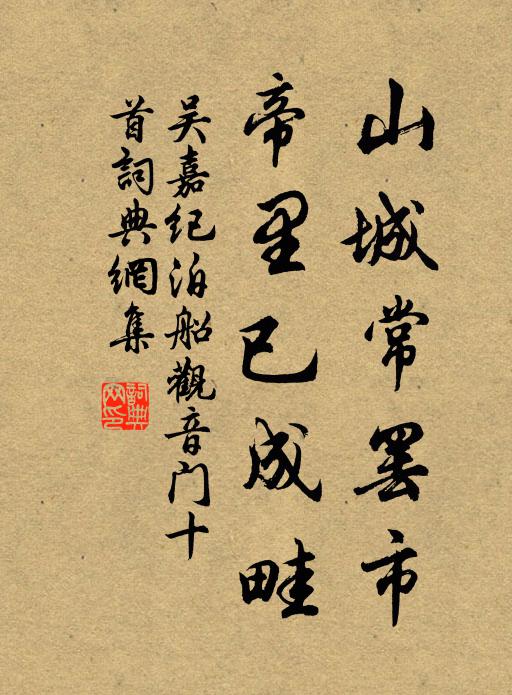 山城常罢市
帝里已成畦
吴嘉纪泊船觀音门十
首詞典網集
詞典网印